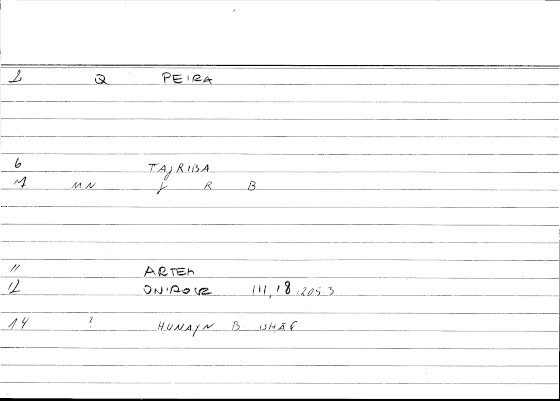 1 Q PEIRA
6 TAJRIBA
7 MN J R B
11 ARTEM
12 ONIROCR III, 18 :205.3
14 ? HUNAJN B ISHĀQ